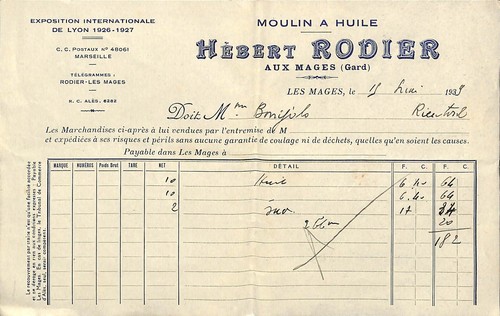 EXPOSITION INTERNATIONALE
DE LYON 1926-1927
C. C. POSTAUX Nº 48061
MARSEILLE
TÉLÉGRAMMES :
RODIER-LES MAGES
R. C. ALÈS, 6283
MOULIN A HUILE
HÉBERT RODIER
AUX MAGES (Gard)
LES MAGES, le 15 193
Doit Mm
Les Marchandises ci-après à lui vendues par l'entremise de M
et expédiées à ses risques et périls sans aucune garantie de coulage ni de déchets, quelles qu'en soient les causes.
Payable dans Les Mages à
MARQUE NUMÉROS Poids Brut TARE NET DÉTAIL F. C. F. C.
10 6 40 64
10 6 40 64
2 17 34
20
182
Le recouvrement par traite n'est qu'une facilité accordée
et ne déroge en rien aux conditions exprimées : Payable
Les Mages. En cas de litiges, le Tribunal de Commerce
d'Alès, seul, serait compétent.